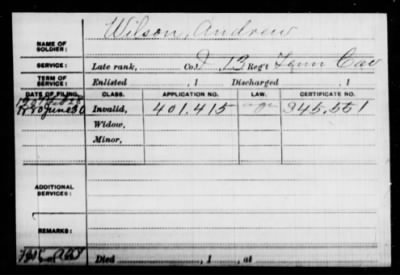 Wilson, Andrew
NAME OF SOLDIER:
SERVICE: Late rank, Co. I, 13 Reg't Tenn Cav
TERM OF SERVICE: Enlisted , 1 Discharged , 1
DATE OF FILING. CLASS. APPLICATION NO. LAW. CERTIFICATE NO.
1880 June 30 Invalid, 401.415 345.551
Widow,
Minor,
ADDITIONAL SERVICES:
REMARKS:
Died , 1 , at